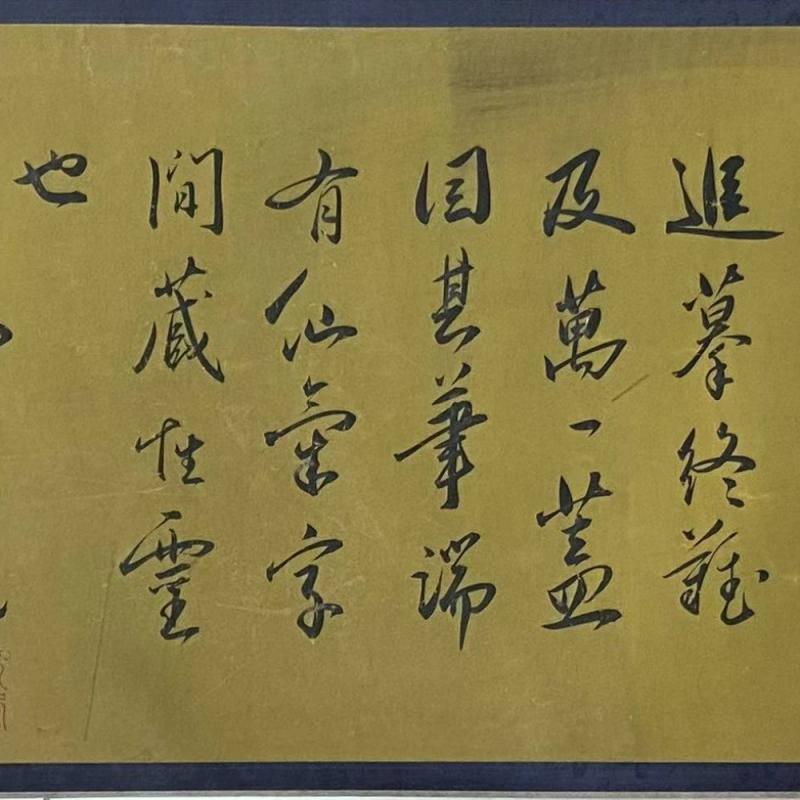 進摹終難
及萬一蓋
因其筆端
有仙氣字
間蔵性靈
也